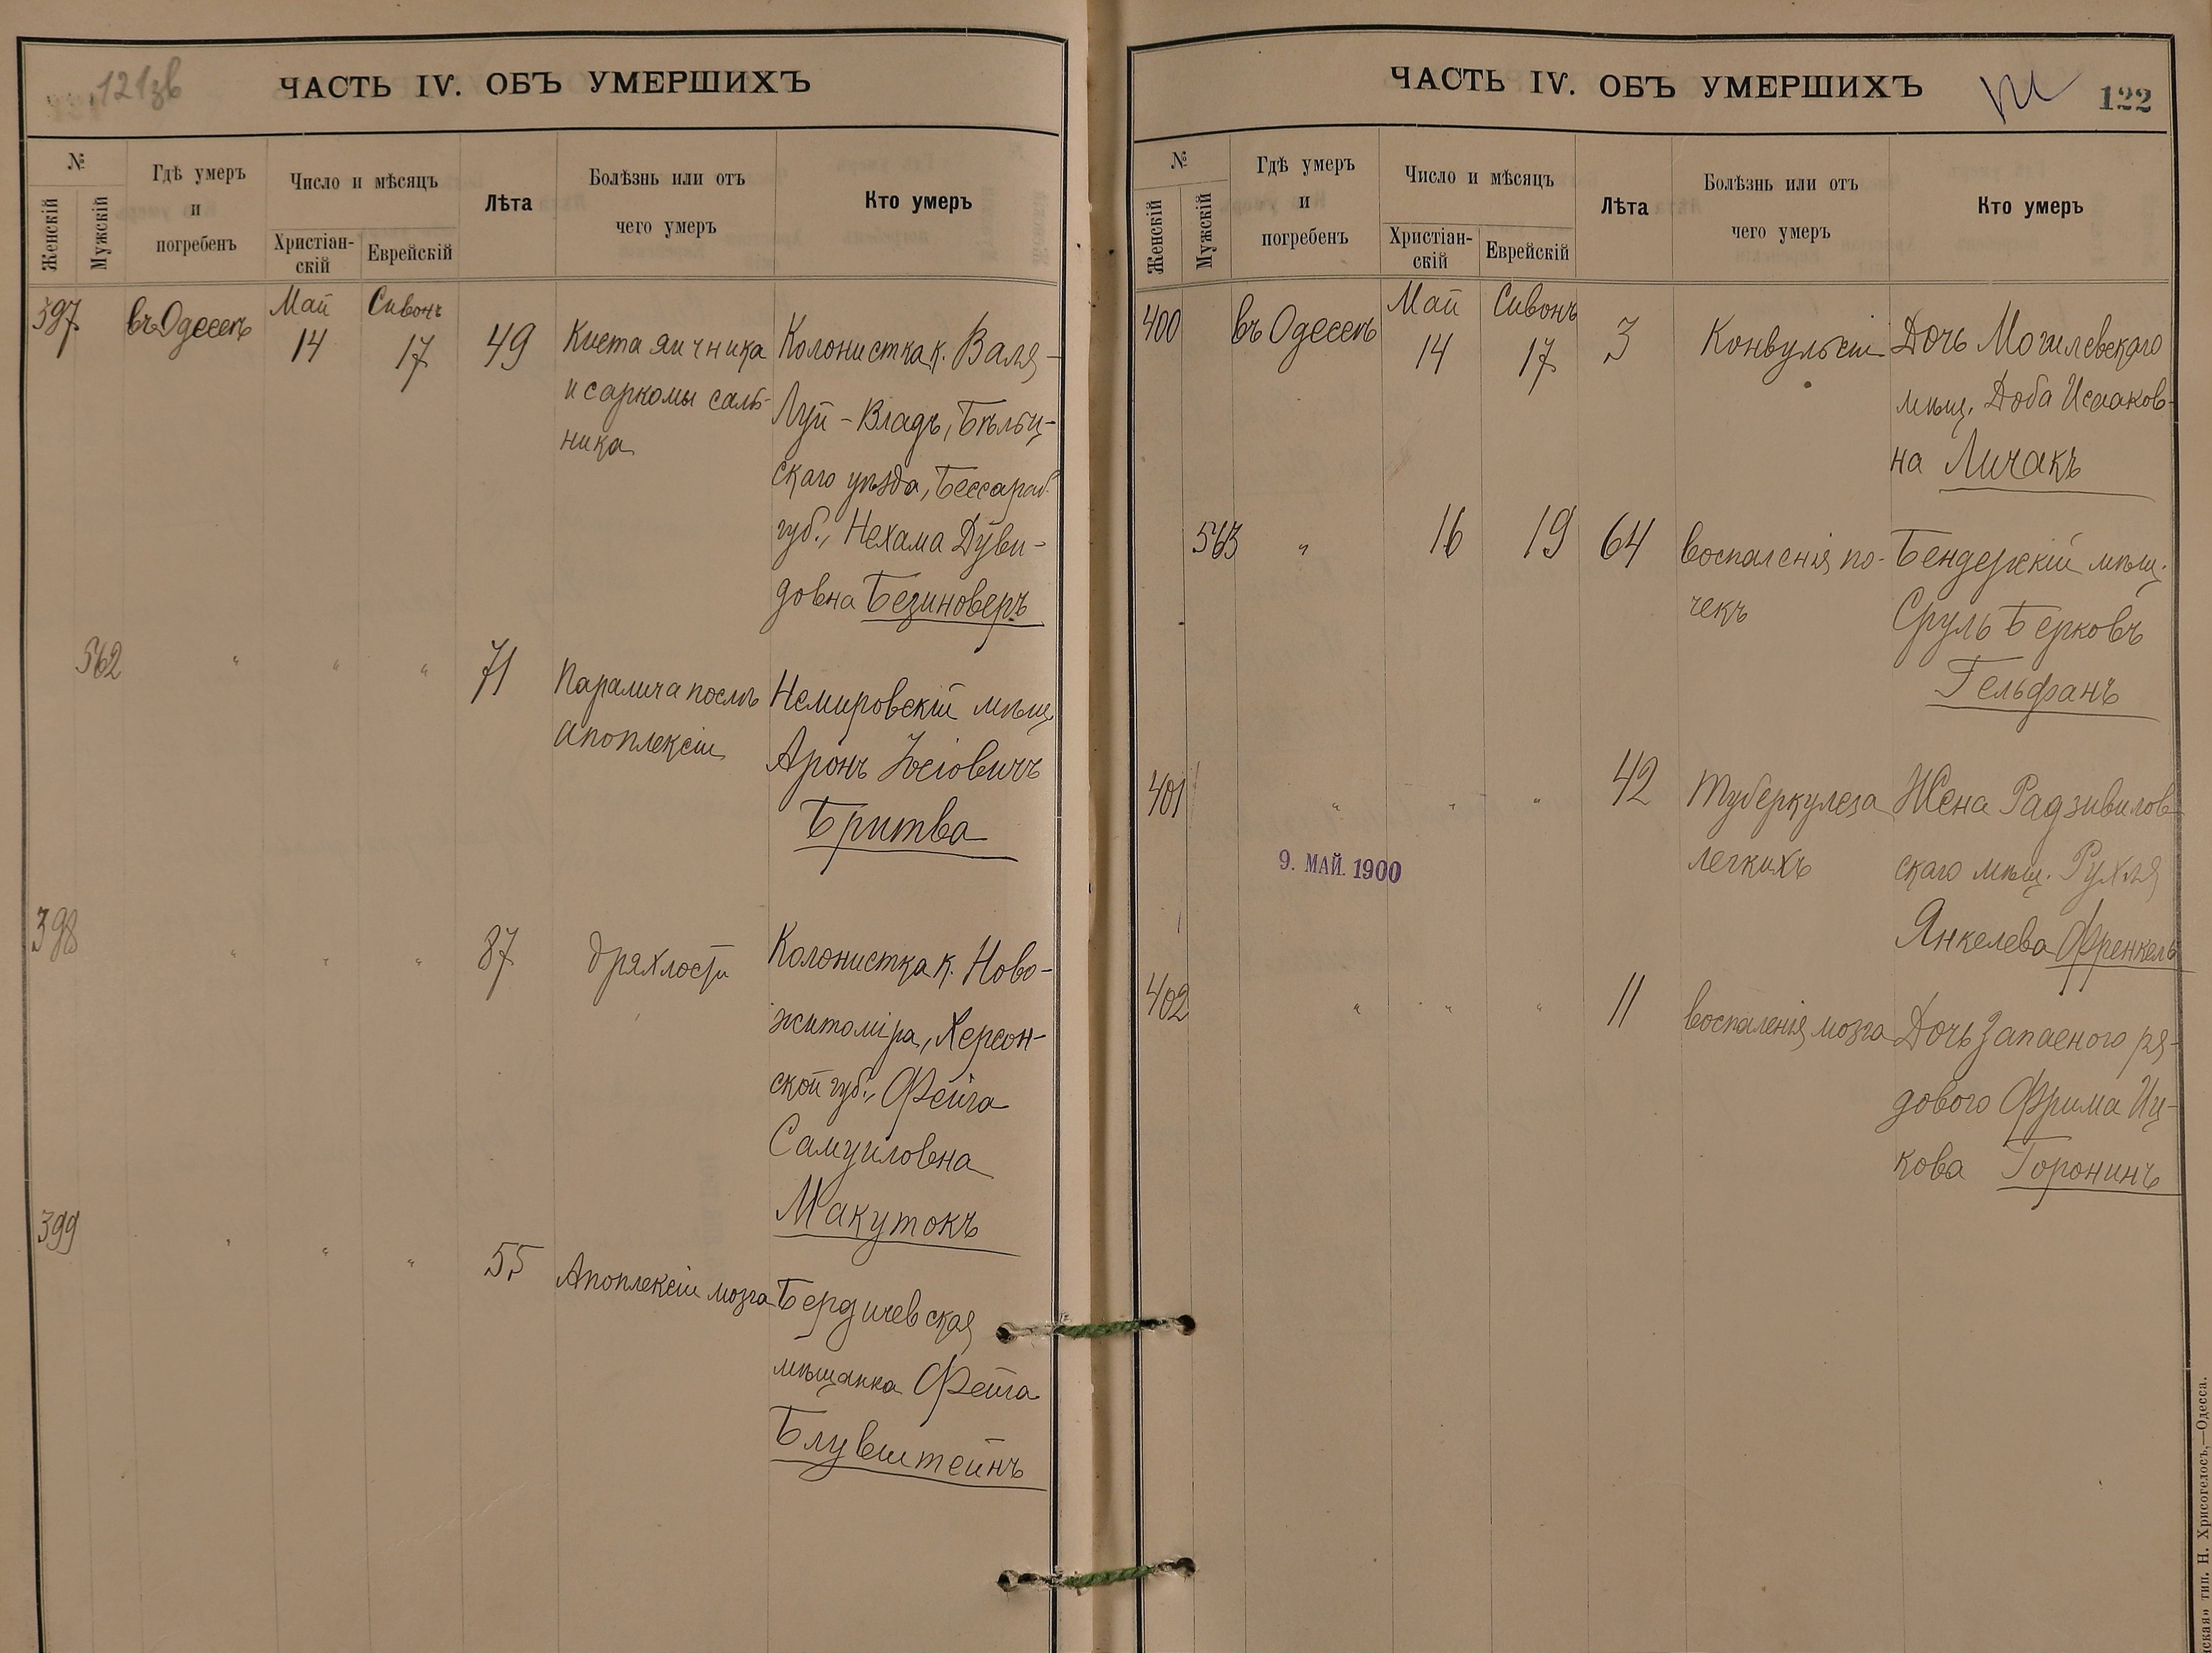 121зв
ЧАСТЬ IV. ОБЪ УМЕРШИХЪ
№
Женскій
Мужскій
Гдѣ умеръ
и
погребенъ
Число и мѣсяцъ
Христіан-
скій
Еврейскій
Лѣта
Болѣзнь или отъ
чего умеръ
Кто умеръ
397 въ Одессѣ Май 14 Сивонъ 17 49
Киста яичника
и саркомы саль-
ника
Колонистка к. Валя-
Луй-Владъ, Бѣльц-
скаго уѣзда, Бессараб.
губ., Нехама Дуви-
довна Безиноверъ
562 " " " 71
Паралича послѣ
апоплексіи
Немировскій мѣщ.
Аронъ Іосіовичъ
Бритва
398 " " " 87
дряхлости
Колонистка к. Ново-
житоміра, Херсон-
ской губ., Фейга
Самуиловна
Макутокъ
399 " " " 55
Апоплексіи мозга
Бердичевская
мѣщанка Фейга
Блувштейнъ
ЧАСТЬ IV. ОБЪ УМЕРШИХЪ
122
№
Женскій
Мужскій
Гдѣ умеръ
и
погребенъ
Число и мѣсяцъ
Христіан-
скій
Еврейскій
Лѣта
Болѣзнь или отъ
чего умеръ
Кто умеръ
400 въ Одессѣ Май 14 Сивонъ 17 3
Конвульсіи
Дочь Могилевскаго
мѣщ. Доба Исааков-
на Личакъ
563 " 16 19 64
воспаленія по-
чекъ
Бендерскій мѣщ.
Сруль Берковъ
Гельфанъ
401 " " " 42
Туберкулеза
легкихъ
Жена Радзивилов-
скаго мѣщ. Рухля
Янкелева Френкель
9. МАЙ. 1900
402 " " " 11
воспаленія мозга
Дочь запасного ря-
дового Фрима Иц-
кова Горонинъ
тип. Н. Хрисогелосъ,—Одесса.